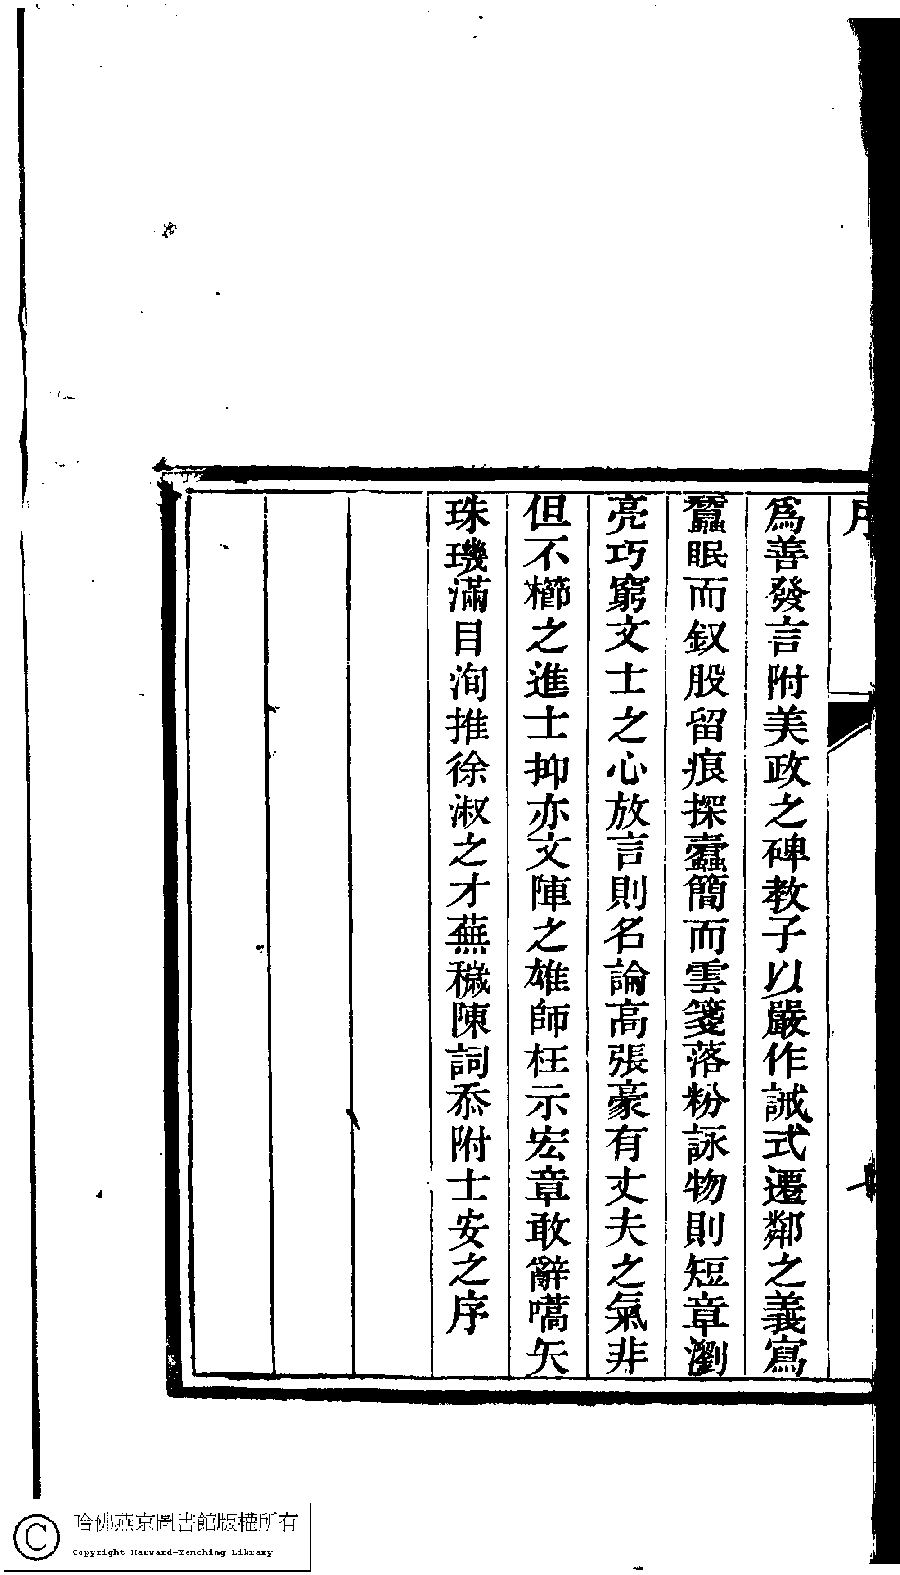 序
爲善發言附美政之碑教子以嚴作誡式遷鄰之義寫
蠶眠而釵股留痕探蠹簡而雲箋落粉詠物則短章瀏
亮巧窮文士之心放言則名論高張豪有丈夫之氣非
但不櫛之進士抑亦文陣之雄師枉示宏章敢辭嚆矢
珠璣滿目洵推徐淑之才蕪穢陳詞忝附士安之序
哈佛燕京圖書館版權所有
Copyright Harvard-Yenching Library